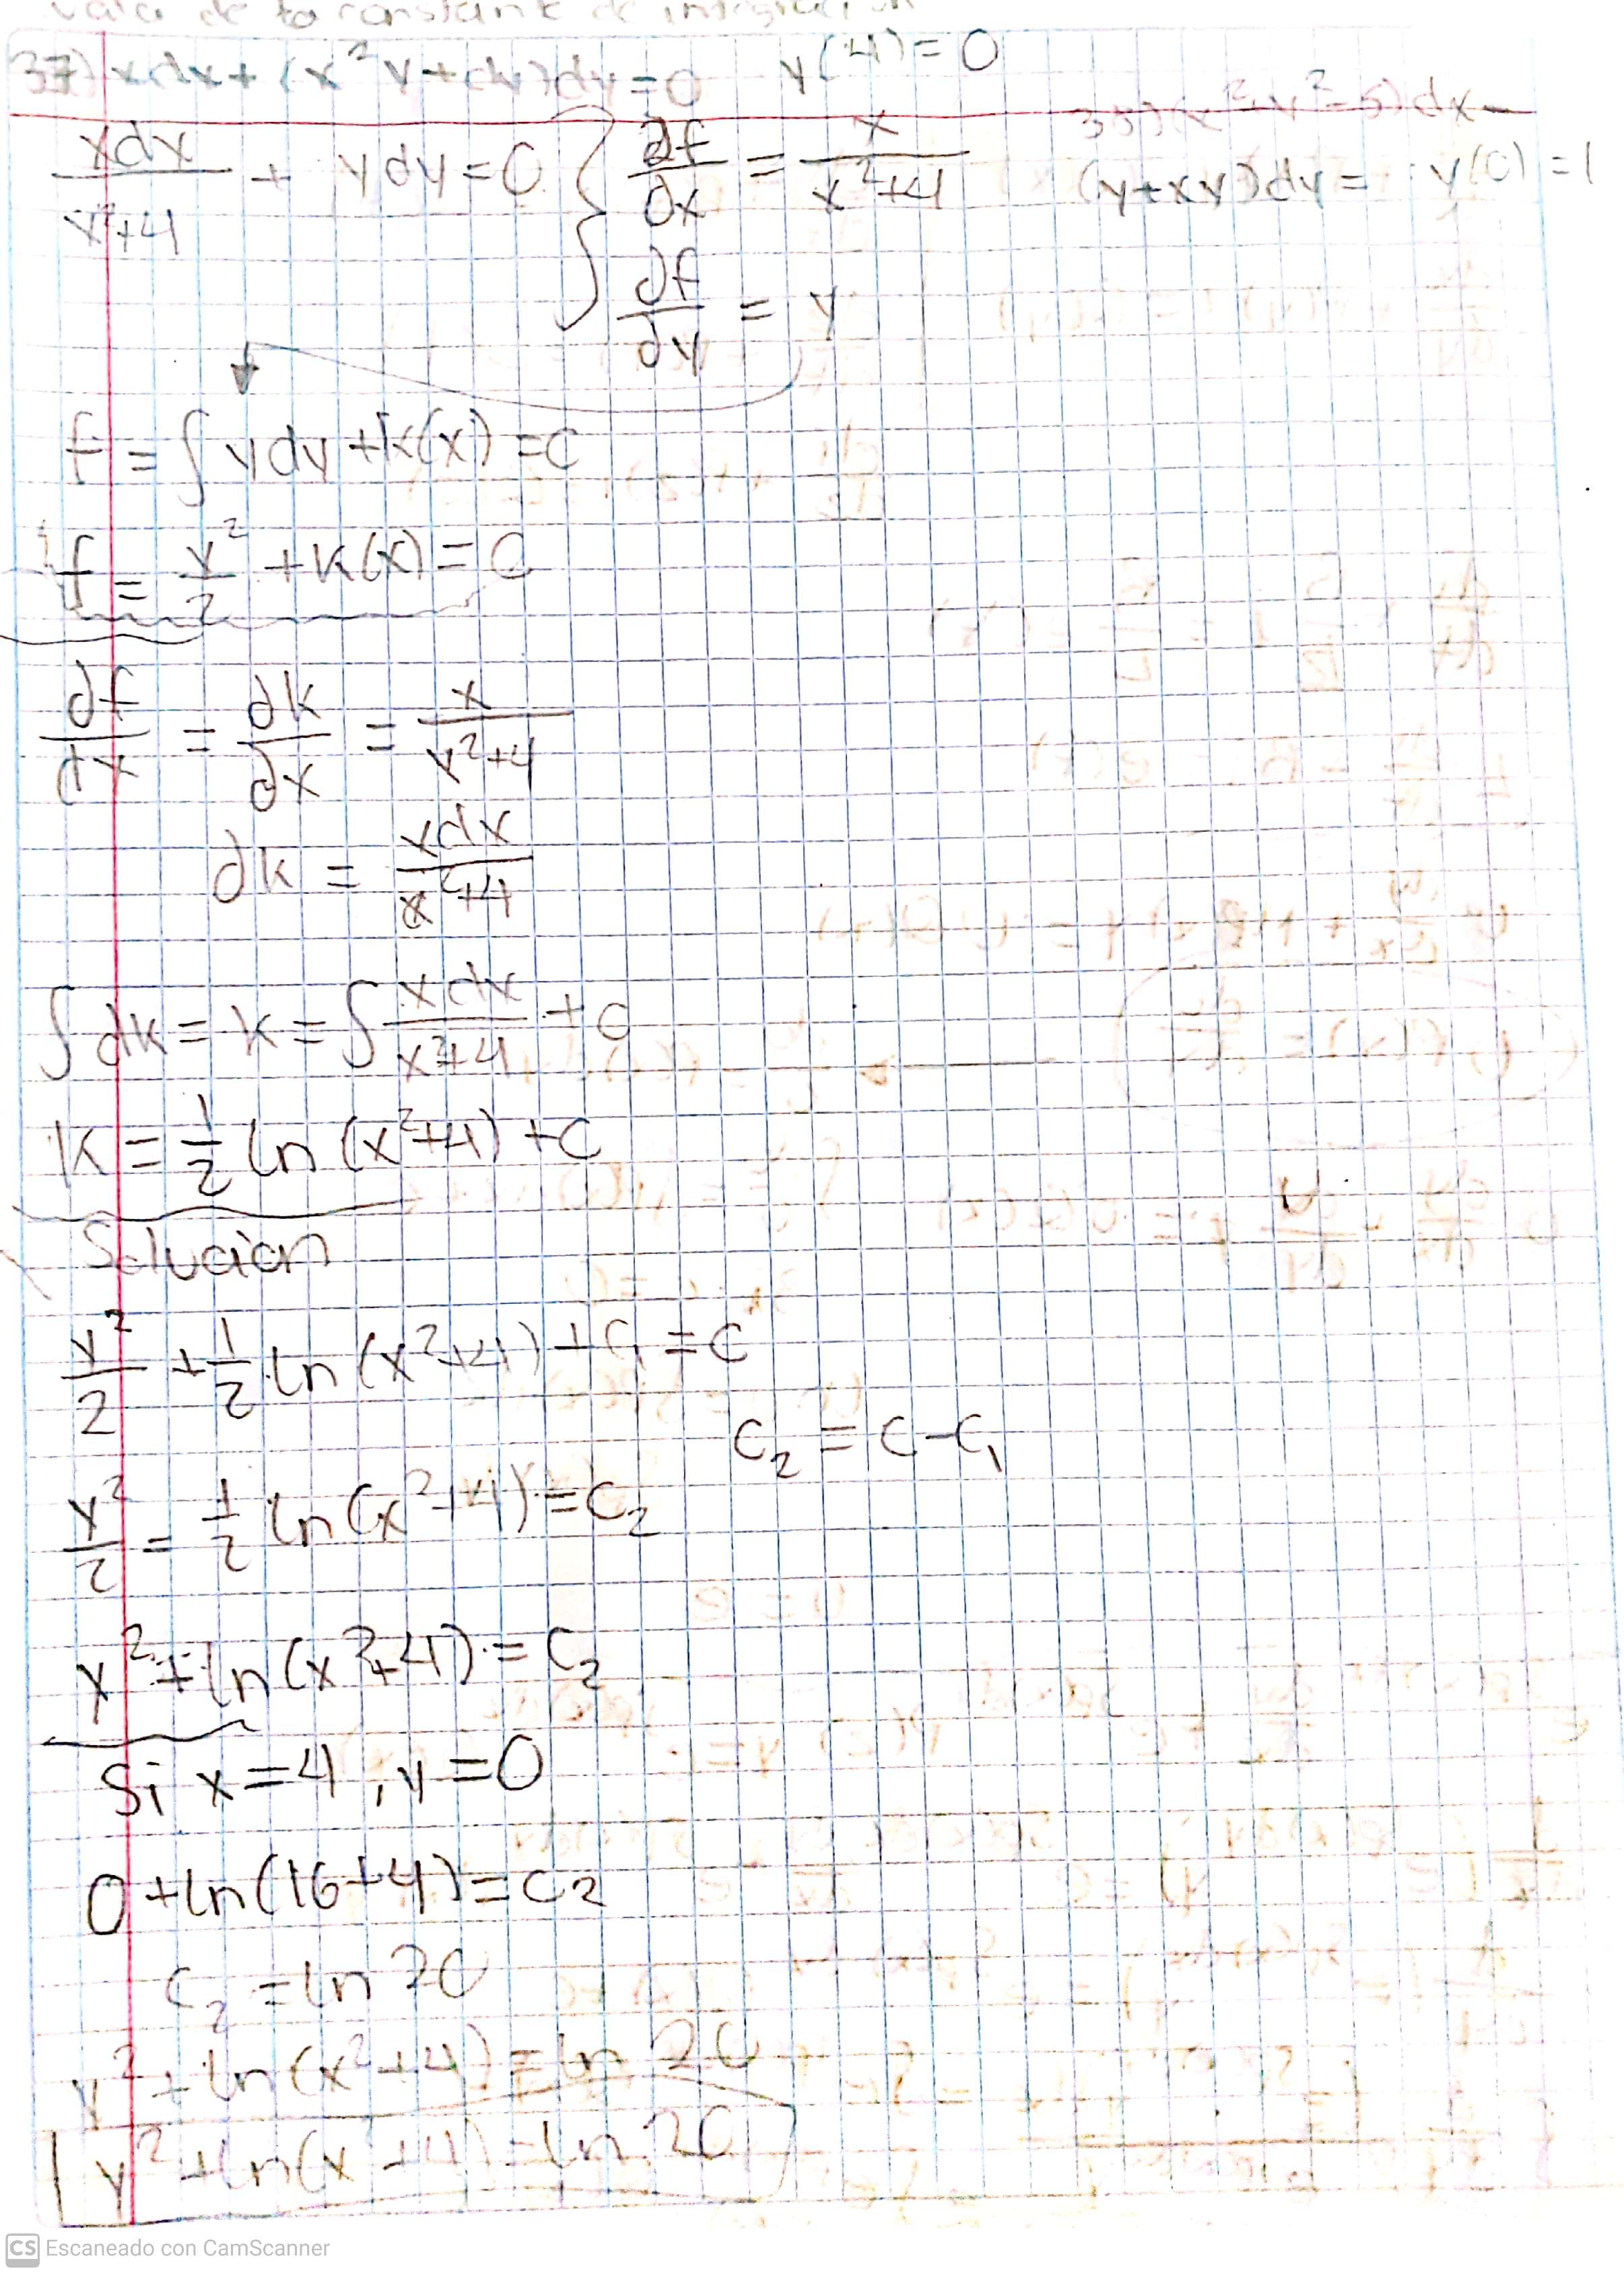 de la constante de integración
37) xdx + (x²y+4y)dy = 0   y(4) = 0
xdx/x²+4 + ydy = 0 { ∂f/∂x = x/x²+4
∂f/∂y = y
(y+xy)dy =   y(0) = 1
f = ∫ ydy + k(x) = C
f = y²/2 + k(x) = C
∂f/∂x = ∂k/∂x = x/x²+4
∂k = xdx/x²+4
∫dk = k = ∫ xdx/x²+4 + C
K = 1/2 ln (x²+4) + C
Solucion
y²/2 + 1/2 ln (x²+4) + C₁ = C
C₂ = C - C₁
y²/2 = 1/2 ln (x²+4) = C₂
y² + ln (x²+4) = C₂
Si x = 4, y = 0
0 + ln(16+4) = C₂
C₂ = ln 20
y² + ln (x²+4) = ln 20
y² + ln(x²+4) = ln 20
CS Escaneado con CamScanner